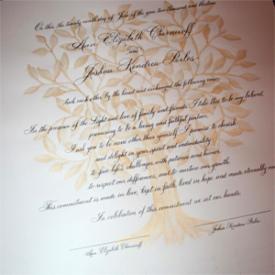 On this, the twenty-ninth day of June of the year two thousand and thirteen
Ann Elizabeth
and
Joshua Kendrew
took each other by the hand and exchanged the following vows:
In the presence of the Light and love of family and friends, I take thee to be my beloved,
promising to be a loving and faithful partner.
I ask you to be none other than yourself. I promise to cherish
and delight in your spirit and individuality,
to face life's challenges with patience and humor,
to respect our differences, and to nurture our growth.
This commitment is made in love, kept in faith, lived in hope, and made eternally new.
In celebration of this commitment we set our hands:
Ann Elizabeth